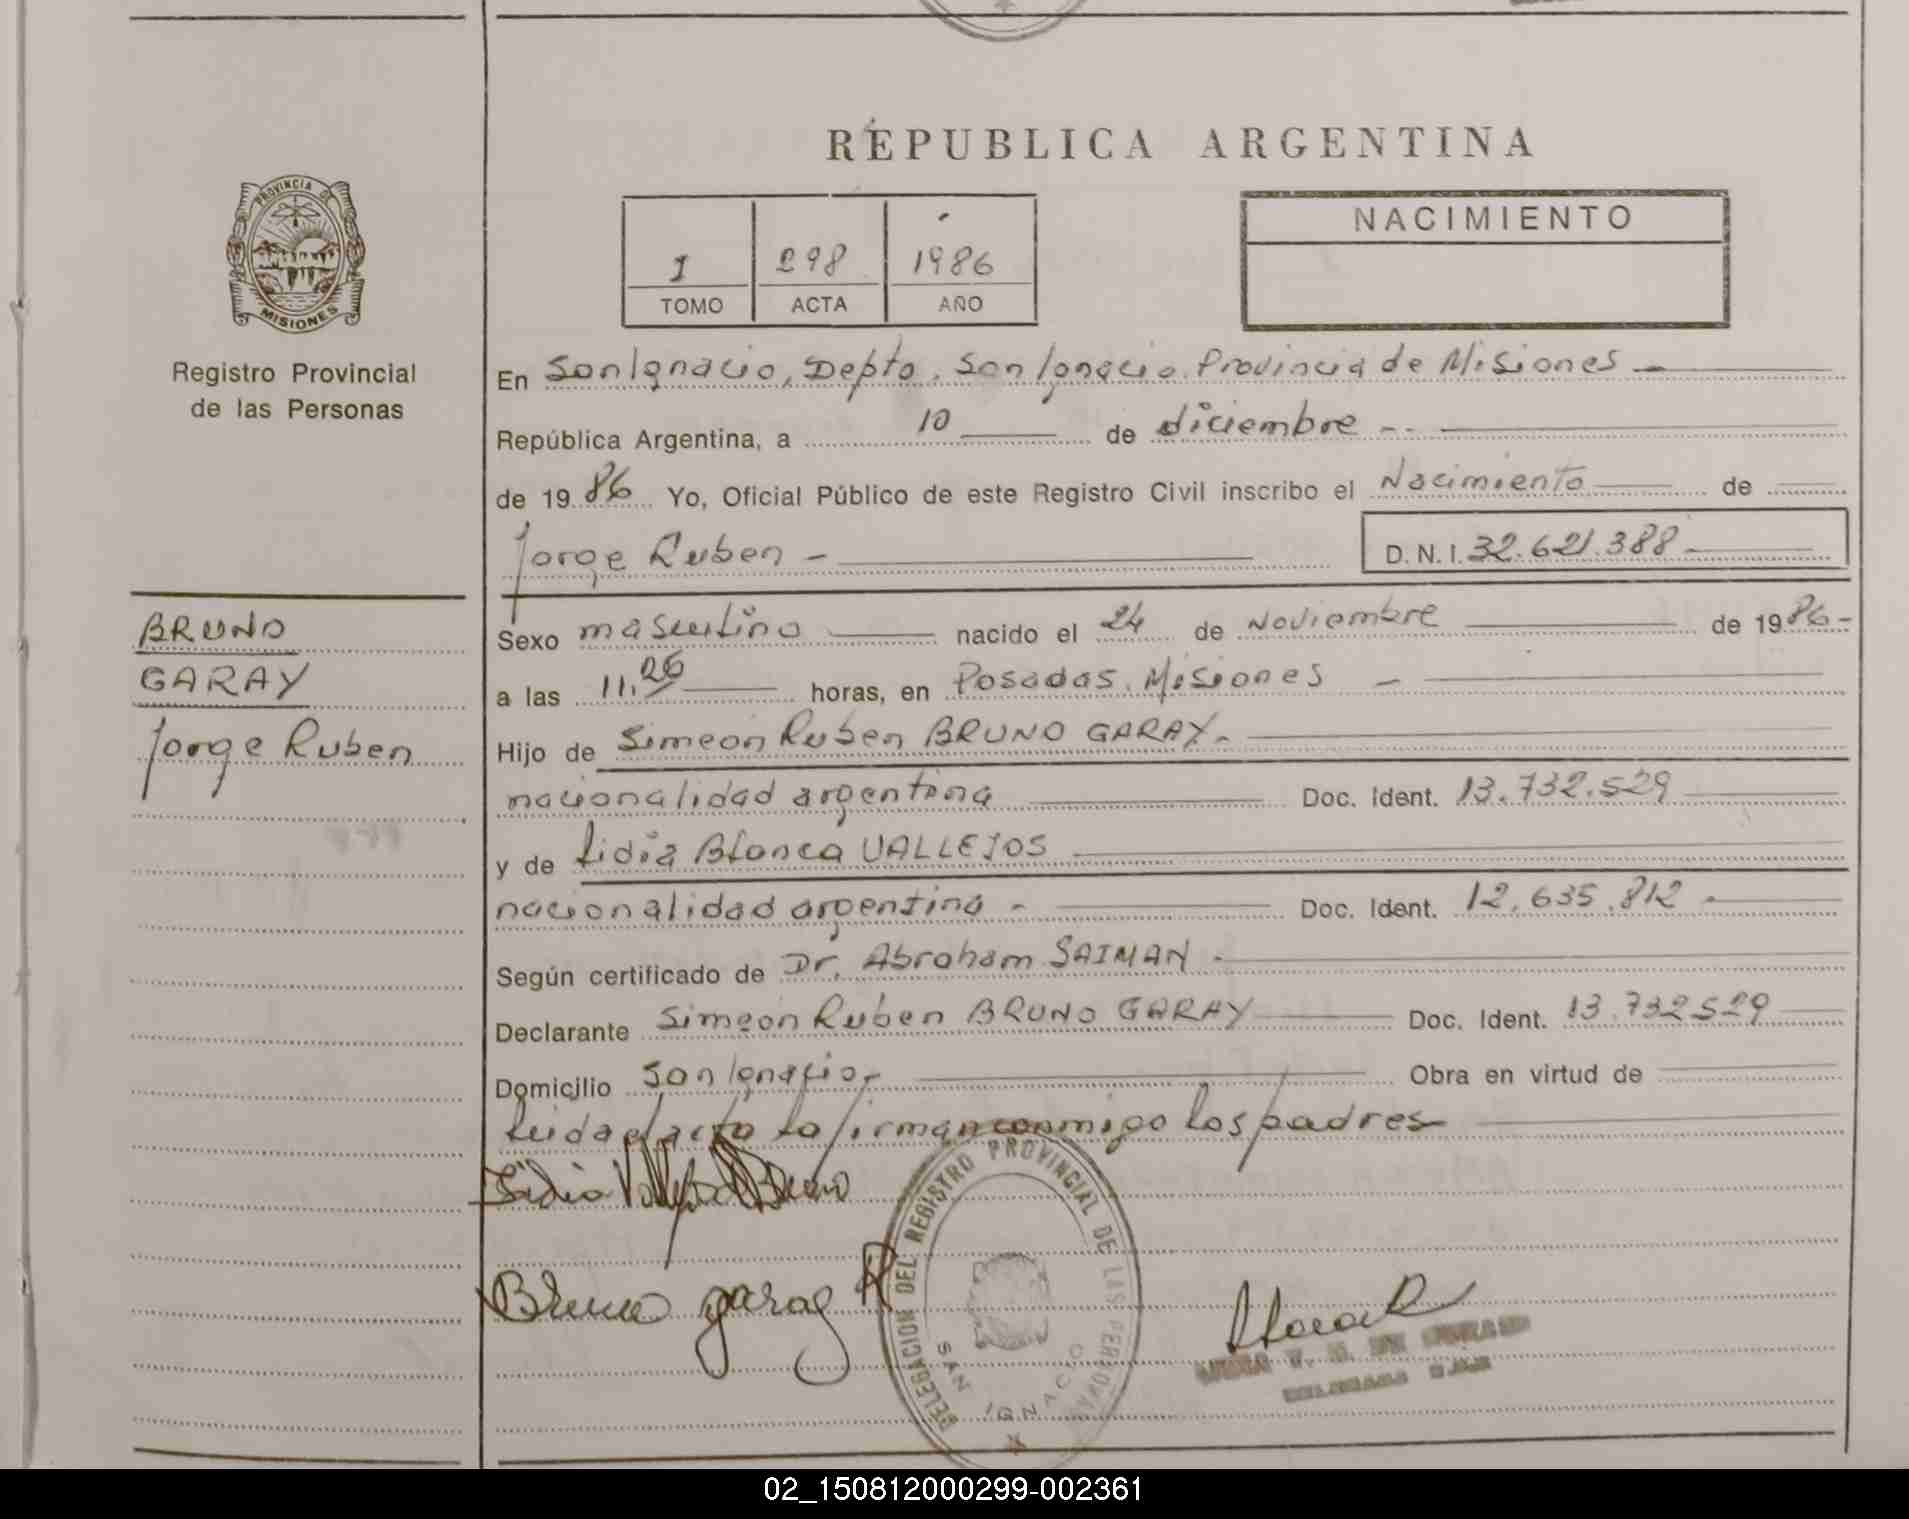 REPUBLICA ARGENTINA
PROVINCIA DE
MISIONES
Registro Provincial
de las Personas
I 298 1986
TOMO ACTA AÑO
NACIMIENTO
En San Ignacio, Depto. San Ignacio Provincia de Misiones
República Argentina, a 10 de diciembre
de 1986 Yo, Oficial Público de este Registro Civil inscribo el Nacimiento de
Jorge Ruben
D. N. I. 32.621.388
BRUNO
GARAY
Jorge Ruben
Sexo masculino nacido el 24 de Noviembre de 1986
a las 11,26 horas, en Posadas, Misiones
Hijo de Simeón Ruben BRUNO GARAY
nacionalidad argentina Doc. Ident. 13.732.529
y de Lidia Blanca VALLEJOS
nacionalidad argentina Doc. Ident. 12.635.812
Según certificado de Dr. Abraham SAIMAN
Declarante Simeón Ruben BRUNO GARAY Doc. Ident. 13.732529
Domicilio San Ignacio Obra en virtud de
Leida el acta la firman conmigo los padres
Lidia Bruno
Bruno garay R
DELEGACION DEL REGISTRO PROVINCIAL DE LAS PERSONAS
SAN IGNACIO
02_150812000299-002361